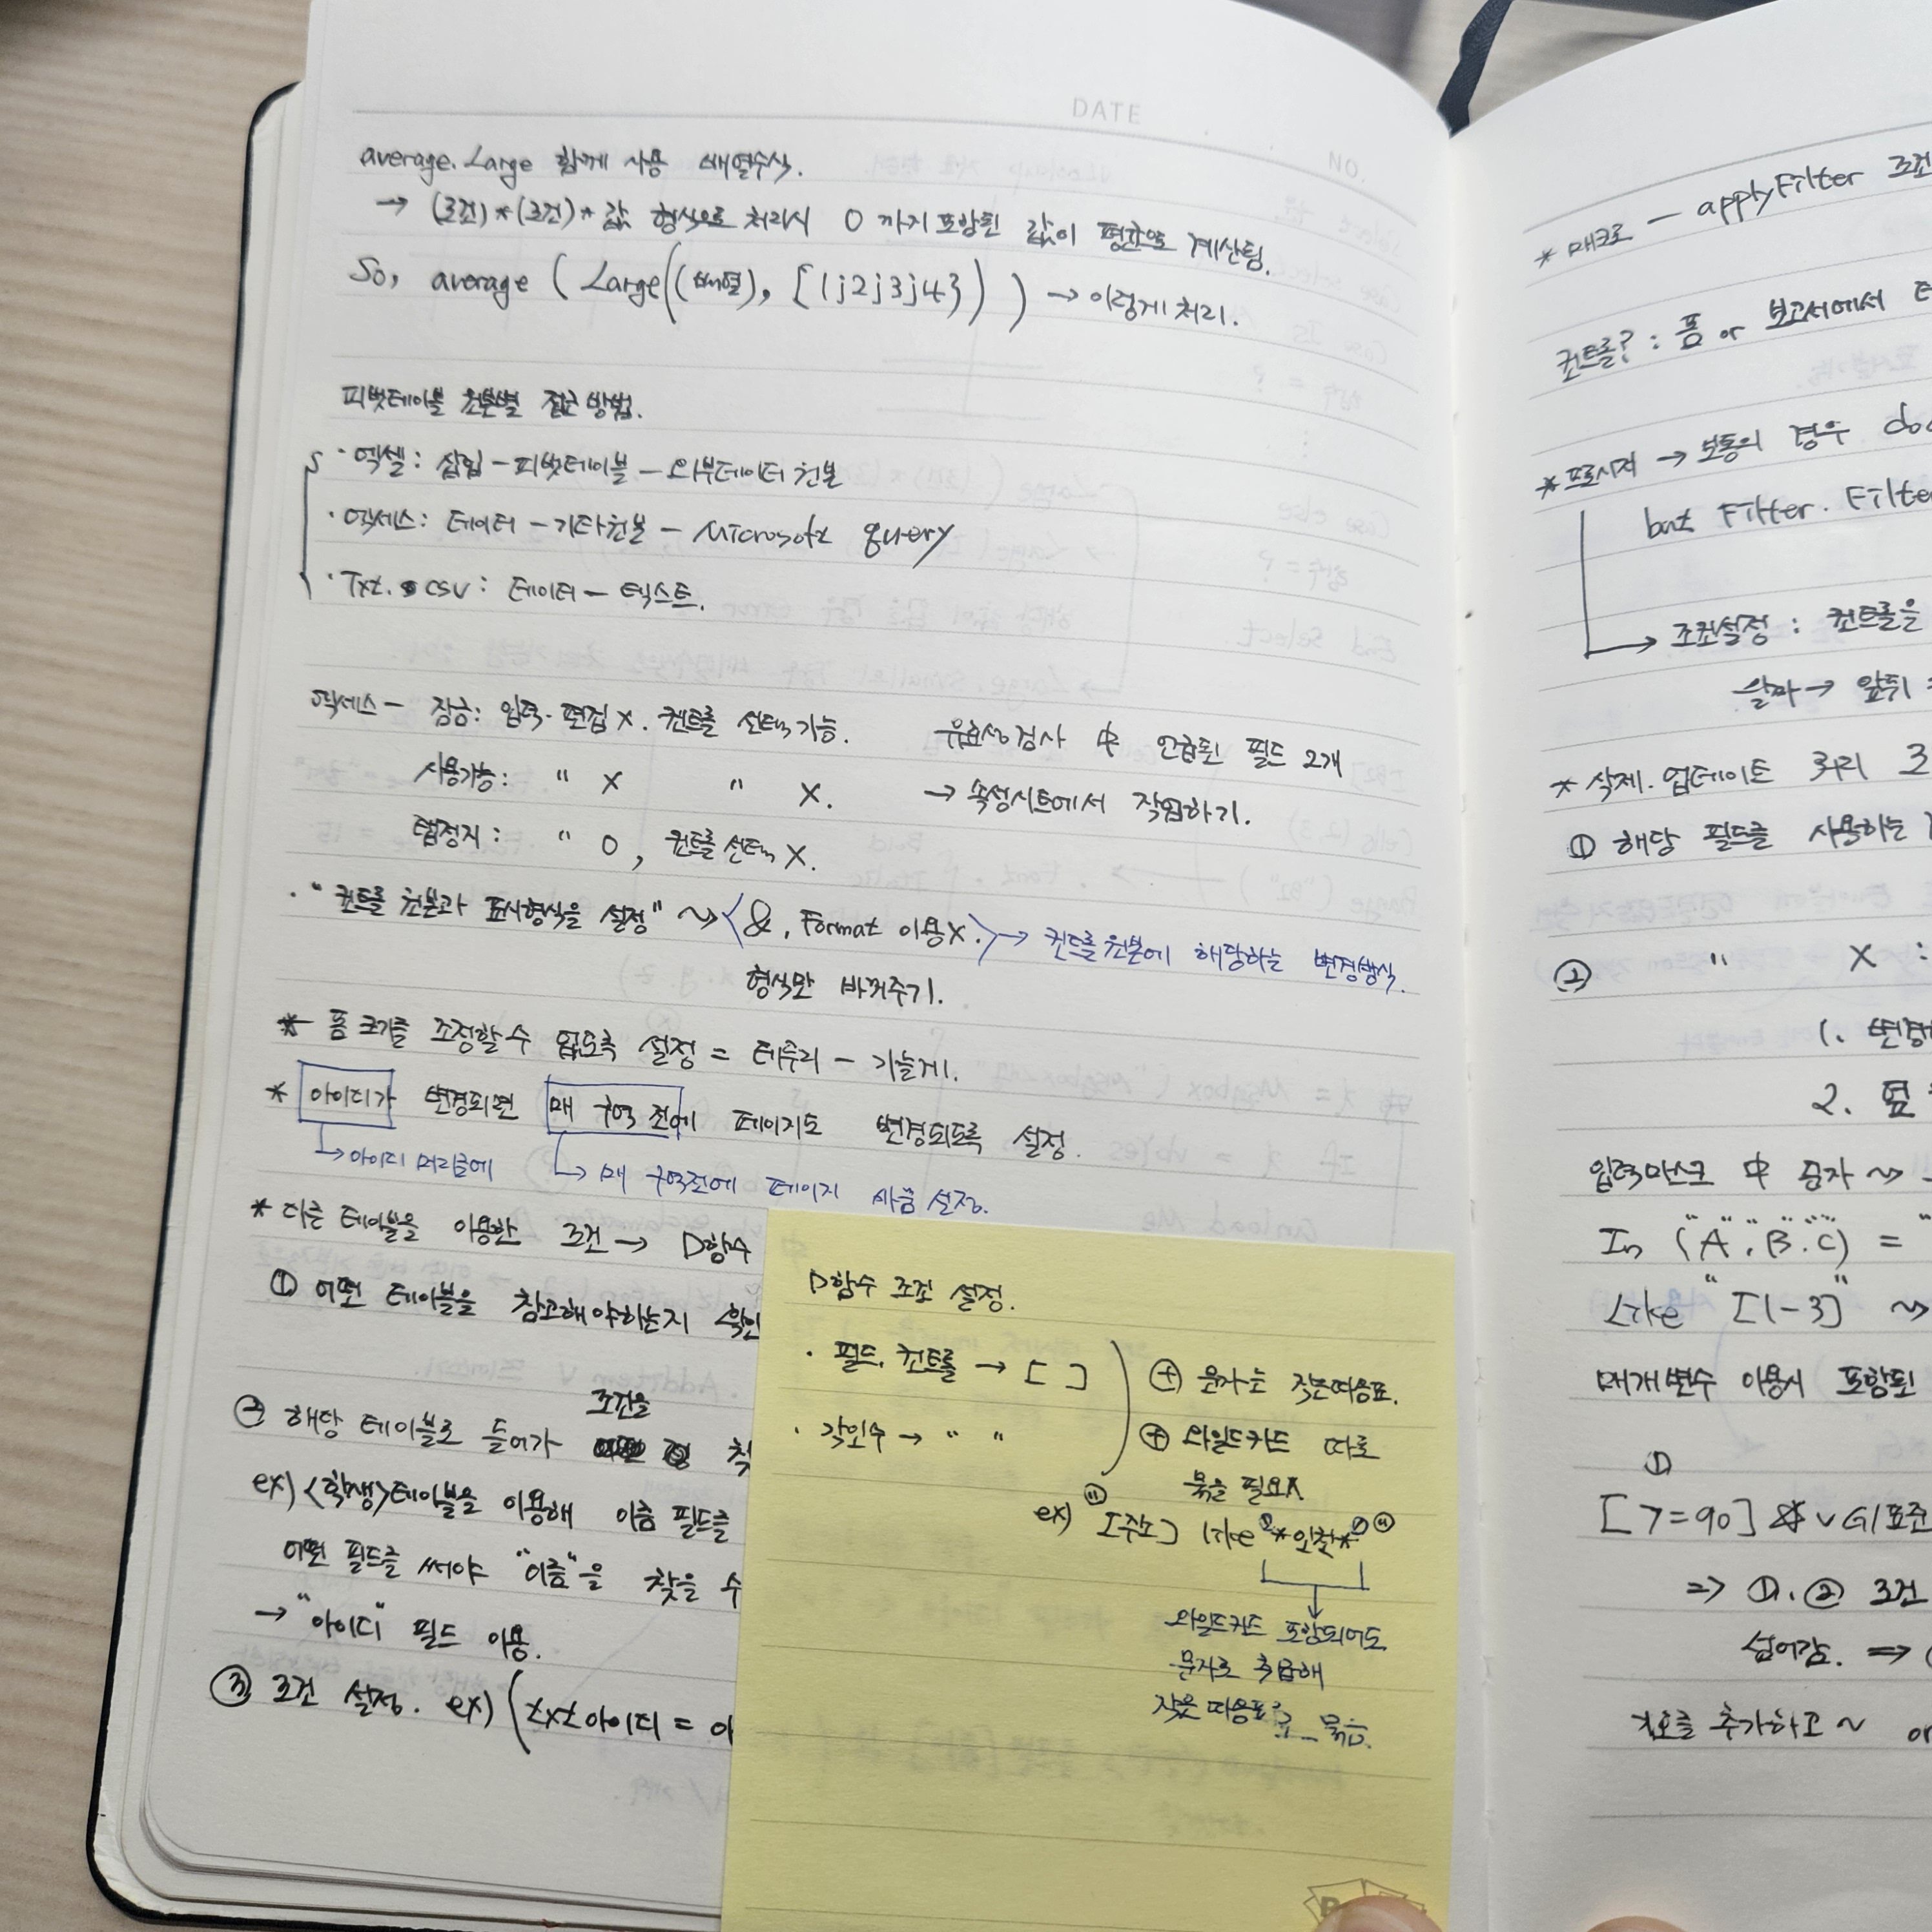 DATE
NO.
average. Large 함께 사용 배열수식.
→ (조건)*(조건)* 값 형식으로 처리시 0 까지 포함된 값이 평균으로 계산됨.
So, average ( Large((배열), {1;2;3;4}) ) → 이렇게 처리.
피벗테이블 원본별 접근 방법.
· 엑셀: 삽입 - 피벗테이블 - 외부데이터 원본
· 엑세스: 데이터 - 기타원본 - Microsoft query
· Txt. csv: 데이터 - 텍스트.
엑세스 - 잠금: 입력·편집 X. 컨트롤 선택 가능.
사용가능: " X " X.
탭정지: " O, 컨트롤 선택 X.
유효성 검사 中 언급된 필드 2개
→ 속성시트에서 작업하기.
· "컨트롤 원본과 표시형식을 설정" ~> <&, Format 이용X.> → 컨트롤원본에 해당하는 변경방식.
형식만 바꿔주기.
* 폼 크기를 조정할 수 없도록 설정 = 테두리 - 가늘게.
* 아이디가 변경되면 매 구역 전에 페이지도 변경되도록 설정.
→ 아이디 머리글에
→ 매 구역전에 페이지 바꿈 설정.
* 다른 테이블을 이용한 조건 → D함수
① 어떤 테이블을 참고해야하는지 확인
② 해당 테이블로 들어가 조건을
ex) <학생>테이블을 이용해 이름 필드를
어떤 필드를 써야 "이름"을 찾을 수
→ "아이디" 필드 이용.
③ 조건 설정. ex) (txt아이디 =
D함수 조건 설정.
· 필드, 컨트롤 → [ ]
· 각인수 → " "
⊕ 문자는 작은따옴표.
⊕ 와일드카드 따로
묶을 필요X
ex) "[주소] like '*인찰*'"
와일드카드 포함되어도
문자로 취급해
작은 따옴표로 묶음.
* 매크로 - applyFilter 조건
컨트롤? : 폼 or 보고서에서
* 프로시저 → 보통의 경우
but Filter. Filter
→ 조건설정 : 컨트롤을
날짜 → 앞뒤
* 삭제. 업데이트 쿼리
① 해당 필드를 사용하는
② " X :
1. 변경
2. 폼
입력마스크 中 문자 ~>
In ("A","B","C") = "
Like "[1-3]" ~>
매개변수 이용시 포함된
①
⇒ ①, ② 조건